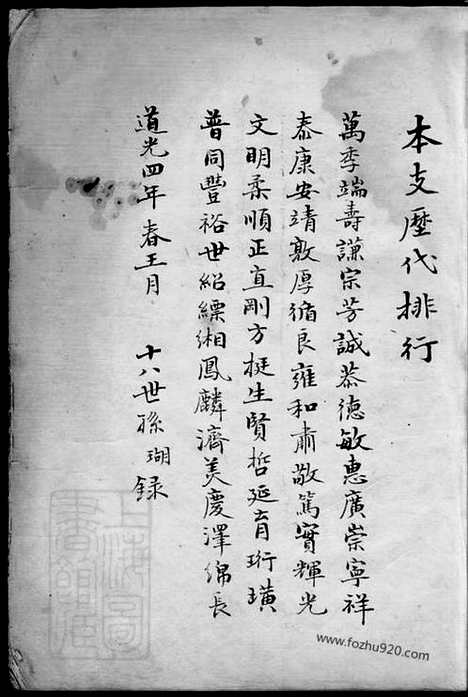 本支歷代排行
萬季端壽謙宗芳誠恭德敏惠廣崇寧祥
泰康安靖敦厚循良雍和肅敬篤實輝光
文明柔順正直剛方挺生賢哲延育珩璜
普同豐裕世紹縹緗鳳麟濟美慶澤綿長
道光四年春王月 十八世孫瑚錄
www.fozhu920.com